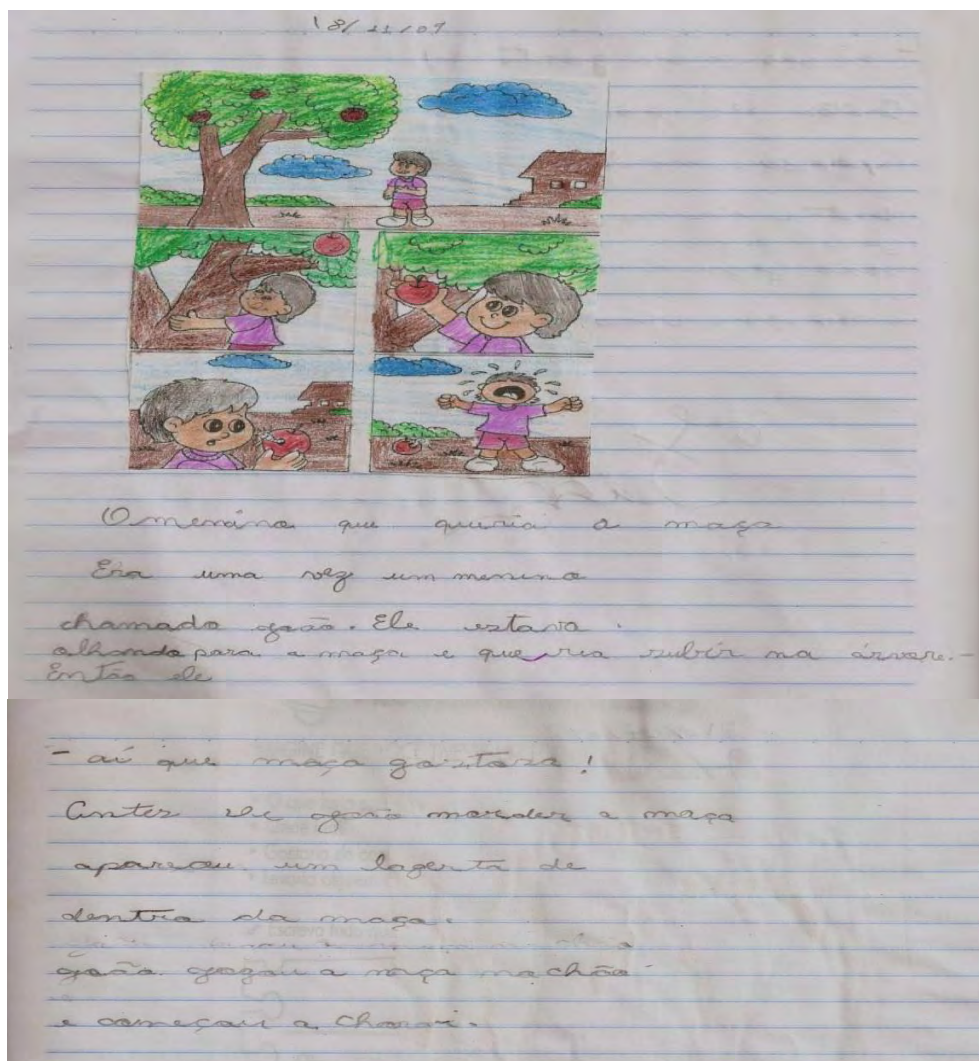 18/11/09
O menino que queria a maça
Era uma vez um menino
chamado goão. Ele estava
olhando para a maça e queria subir na árvore.-
Então ele
- aí que maça gostosa!
Antes de goão morder a maça
apareceu um lagerta de
dentro da maça.
goão gogou a maça no chão
e começou a chorar.